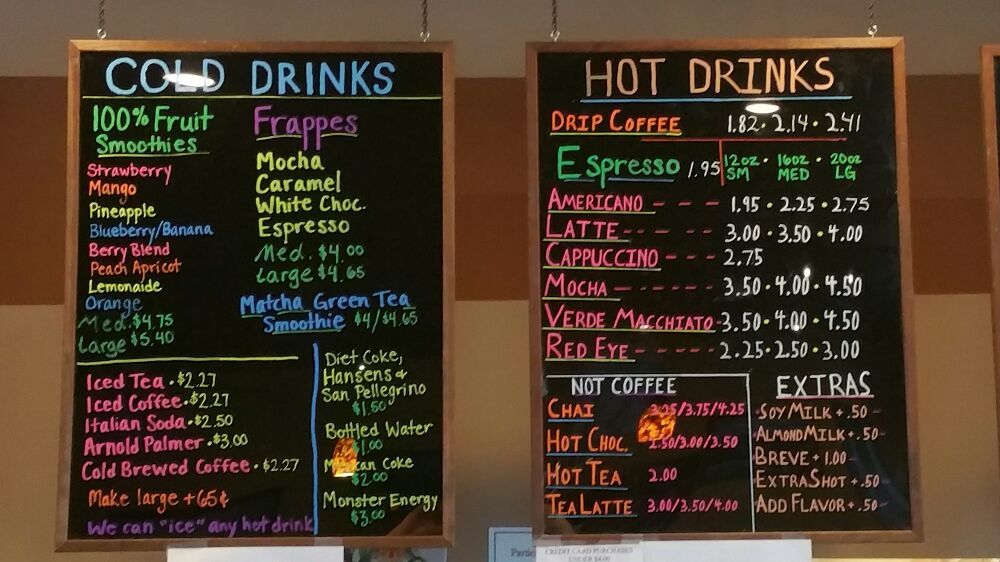 COLD DRINKS
100% Fruit
Smoothies
Strawberry
Mango
Pineapple
Blueberry/Banana
Berry Blend
Peach Apricot
Lemonaide
Orange
Med. $4.75
Large $5.40
Frappes
Mocha
Caramel
White Choc.
Espresso
Med. $4.00
Large $4.65
Matcha Green Tea
Smoothie $4/$4.65
Iced Tea • $2.27
Iced Coffee • $2.27
Italian Soda • $2.50
Arnold Palmer • $3.00
Cold Brewed Coffee • $2.27
Make large +65¢
We can "ice" any hot drink
Diet Coke,
Hansens &
San Pellegrino
$1.50
Bottled Water
$1.00
Coke
$2.00
Monster Energy
$3.00
HOT DRINKS
DRIP COFFEE 1.82 • 2.14 • 2.41
Espresso 1.95 12oz • 16oz • 20oz
SM MED LG
AMERICANO - - - 1.95 • 2.25 • 2.75
LATTE - - - - - 3.00 • 3.50 • 4.00
CAPPUCCINO - - - 2.75
MOCHA - - - - - 3.50 • 4.00 • 4.50
VERDE MACCHIATO - 3.50 • 4.00 • 4.50
RED EYE - - - - - 2.25 • 2.50 • 3.00
NOT COFFEE
CHAI /3.75/4.25
HOT CHOC. /3.00/3.50
HOT TEA 2.00
TEA LATTE 3.00/3.50/4.00
EXTRAS
SOY MILK + .50
ALMOND MILK + .50
BREVE + 1.00
EXTRA SHOT + .50
ADD FLAVOR + .50
CREDIT CARD PURCHASES
UNDER $4.00